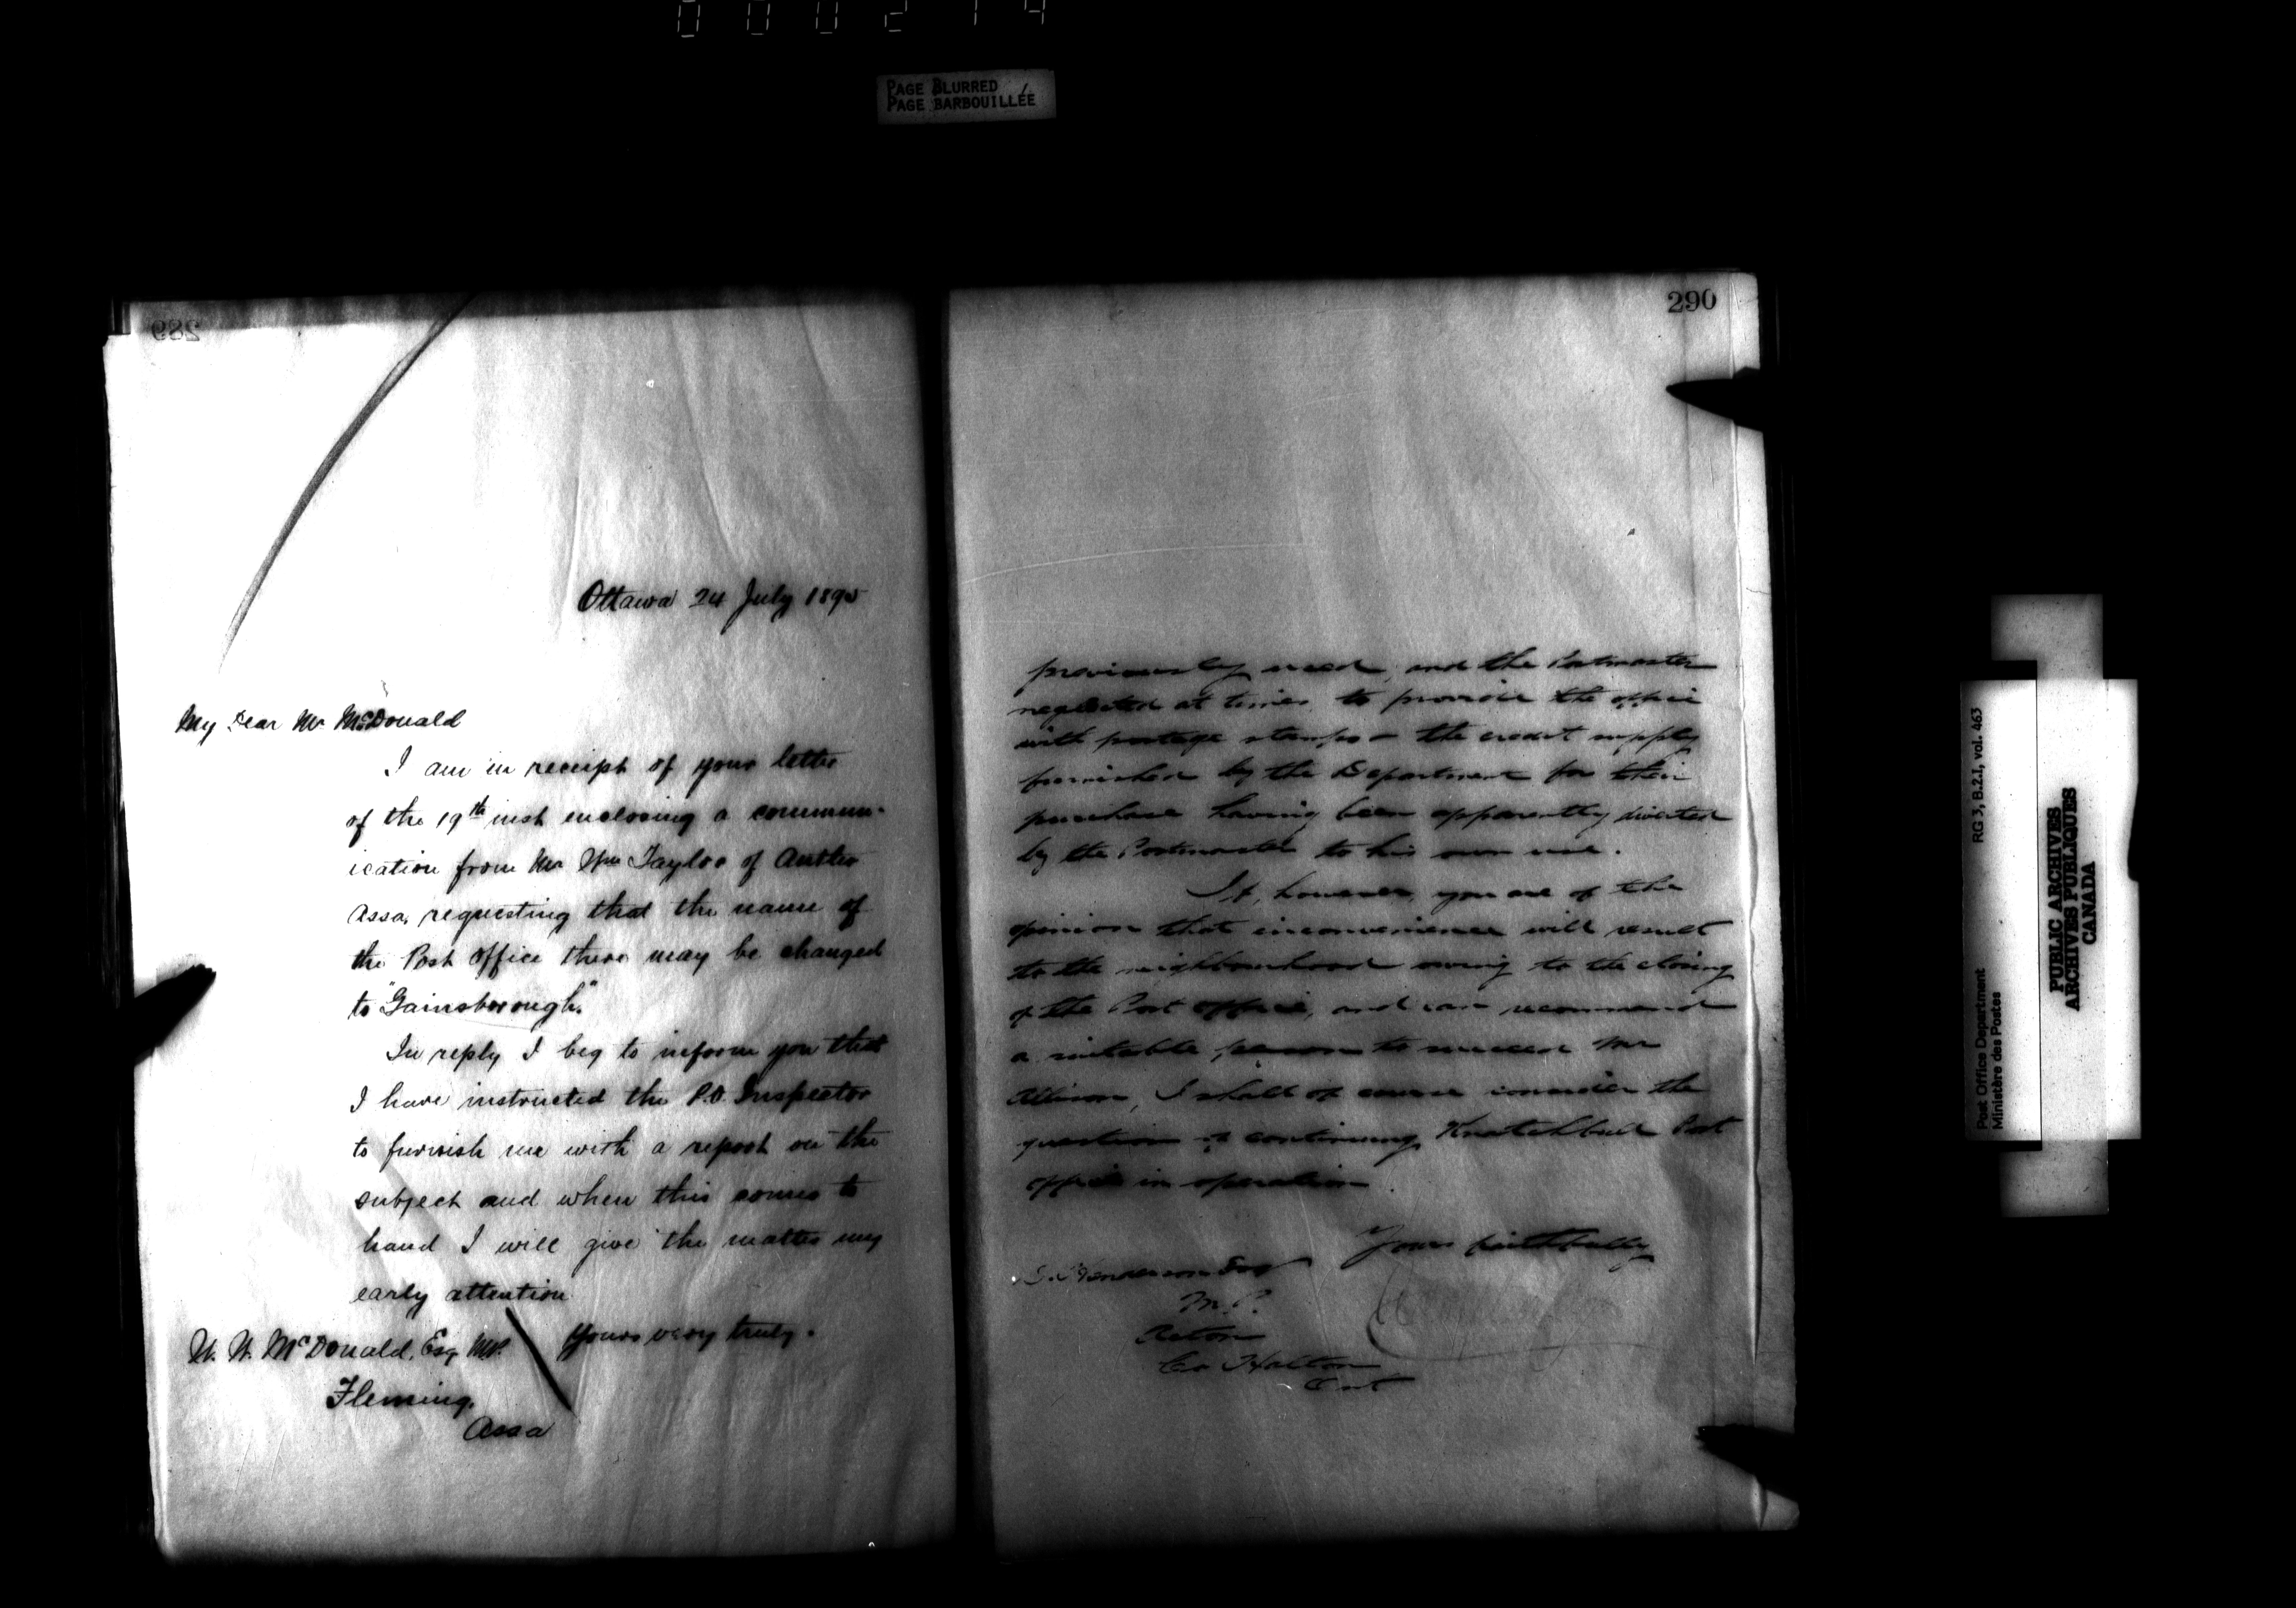 000214
PAGE BLURRED
PAGE BARBOUILLÉE
289
Ottawa 24 July 1895
My Dear Mr McDonald
I am in receipt of your letter
of the 19th inst enclosing a commun-
ication from Mr Wm Taylor of Antler
Assa, requesting that the name of
the Post Office there may be changed
to "Gainsborough."
In reply I beg to inform you that
I have instructed the P.O. Inspector
to furnish me with a report on the
subject and when this comes to
hand I will give the matter my
early attention
Yours very truly.
W. W. McDonald, Esq MP.
Fleming,
Assa
290
previously used, and the Postmaster
neglected at times to provide the office
with postage stamps – the credit supply
furnished by the Department for their
purchase having been apparently diverted
by the Postmaster to his own use.
If, however, you are of the
opinion that inconvenience will result
to the neighbourhood owing to the closing
of the Post office, and can recommend
a suitable person to succeed Mr
Allison, I shall of course consider the
question of continuing Knatchbull Post
office in operation.
Yours faithfully
D. Henderson Esq
M.P.
Acton
Co Halton
Ont
Post Office Department
Ministère des Postes
RG 3, B.2.I, vol. 463
PUBLIC ARCHIVES
ARCHIVES PUBLIQUES
CANADA